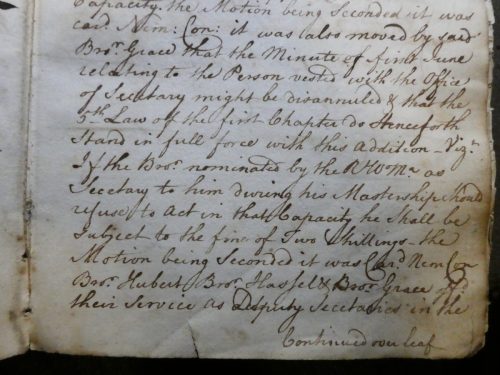 Capacity. the Motion being Seconded it was
card. Nem: Con: it was also moved by said
Bror. Grace that the Minute of first June
relating to the Person vested with the Office
of Secetary might be disannuled & that the
5th Law off the first Chapter do Henceforth
Stand in full force with this Addition - Vizt.
If the Bror. nominated by the RWMr as
Secetary to him during his Mastership should
refuse to Act in that Capacity he Shall be
Subject to the fine of Two Shillings - the
Motion being Seconded it was Card. Nem Con
Bror. Hubert Bror. Hassel & Bror. Grace
their Service as Deputy Secetaries in the
Continued over leaf